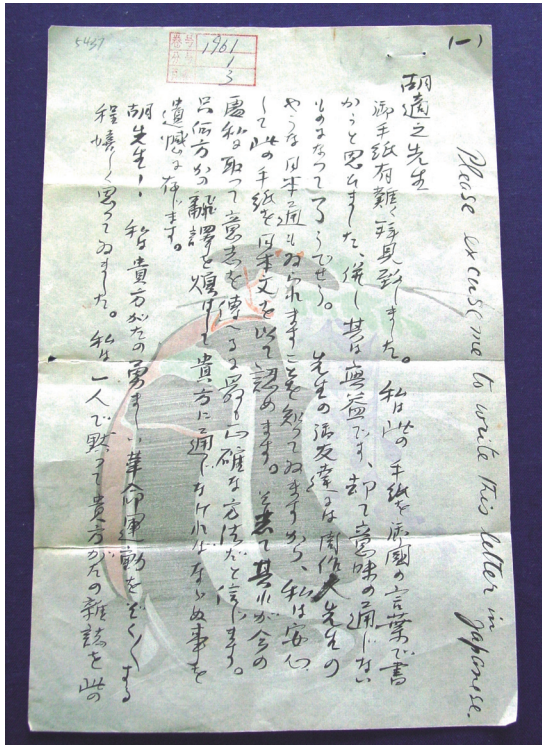 5437
番号
1961
1
3
(一)
Please excuse me to write this letter in Japanese.
胡適之先生
御手紙有難く拝見致しました。私は此の手紙を御国の言葉で書
かうと思ひました、併し其は無益です、却て意味の通じない
ものになつて了うでせう。先生の御友達には周作人先生の
やうな日本通もゐられますことを知つてゐますから、私は安心
して此の手紙を日本文を以て認めます。そして其れが今の
処私に取つて意志を傳へる最も正確な方法だと信じます。
只何方かの飜譯を煩はして貴方に通じなければならぬ事を
遺憾に存じます。
胡先生! 私は貴方がたの勇ましい革命運動をぞくぞくする
程嬉しく思つてゐました。私は一人で黙つて貴方がたの雑誌を此の